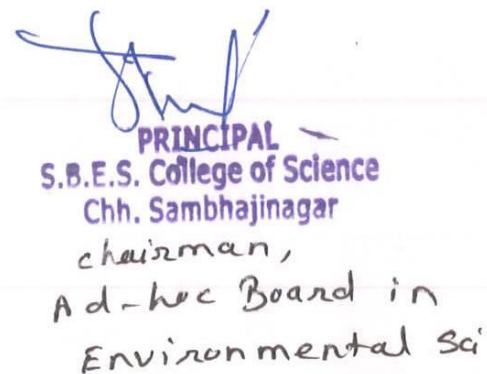 PRINCIPAL
S.B.E.S. College of Science
Chh. Sambhajinagar
chairman,
Ad-hoc Board in
Environmental Sci